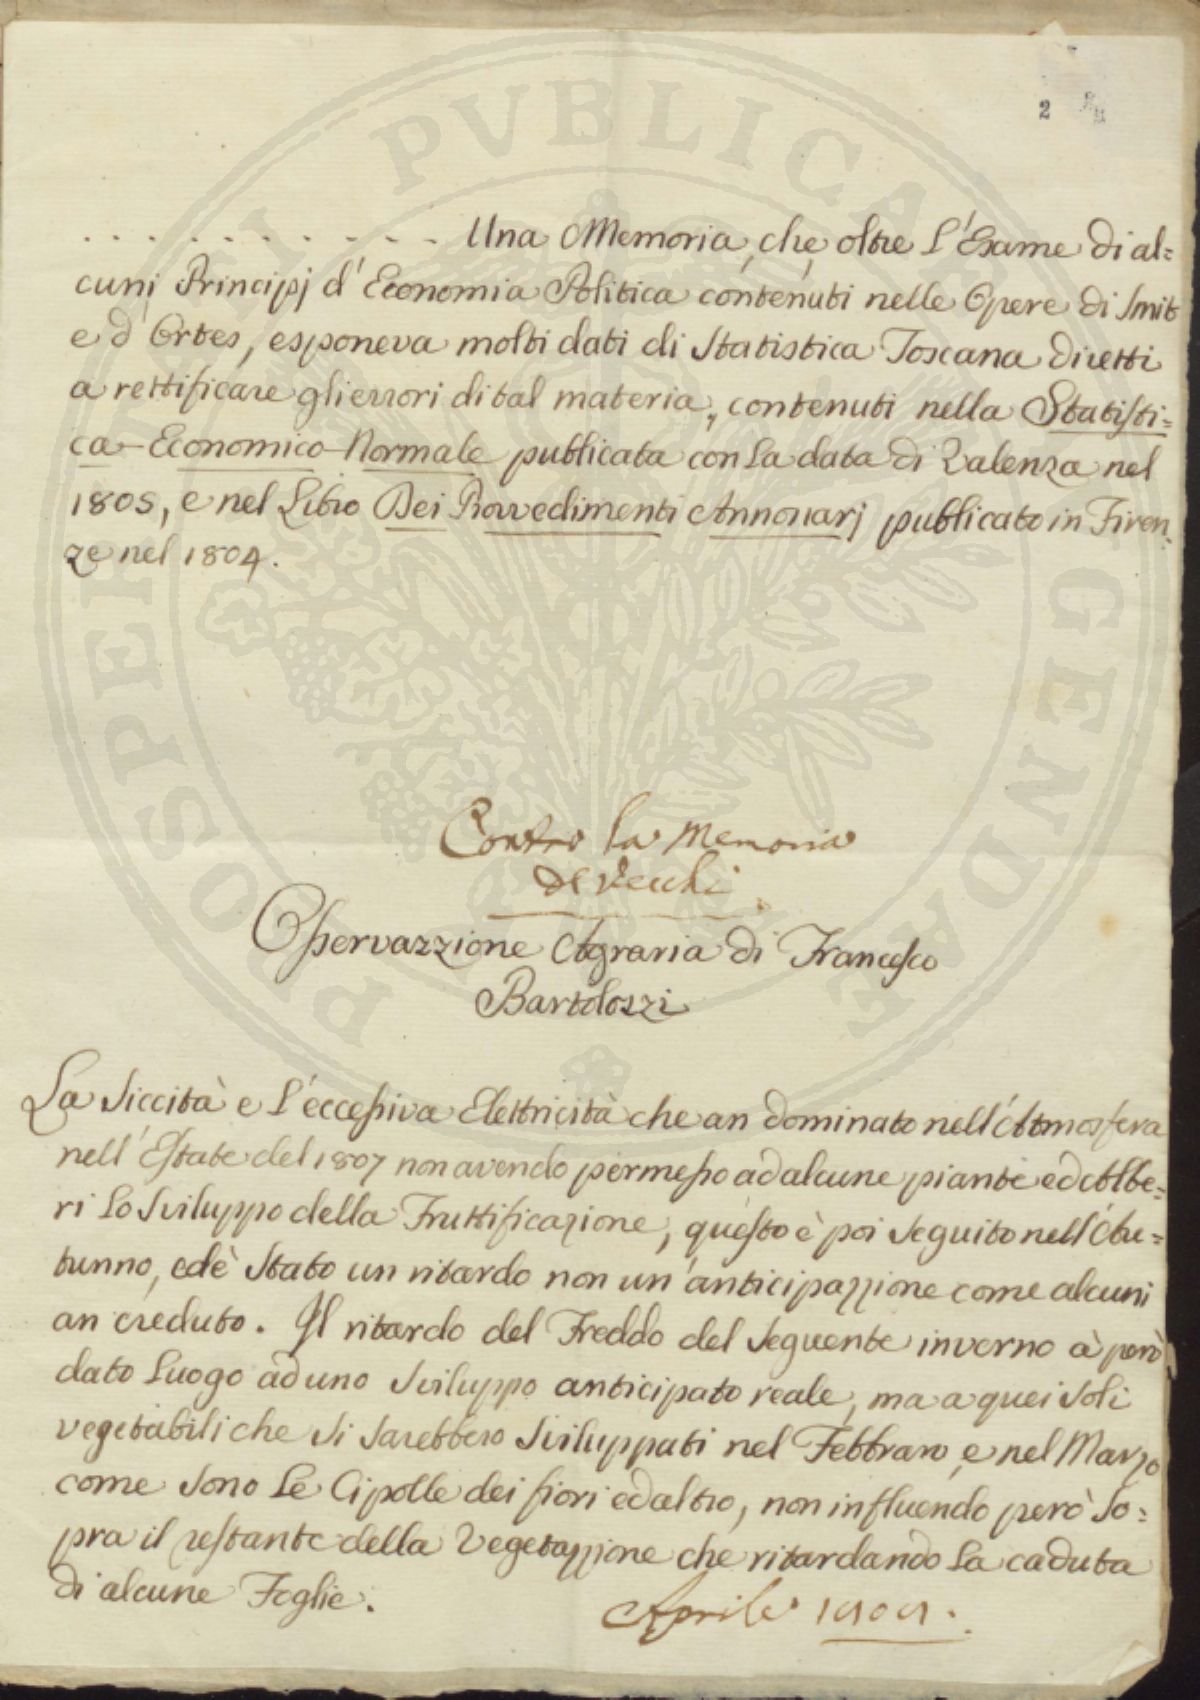 2
. . . . . . . . . . . . Una Memoria, che, oltre l'Esame di al=
cuni Principj d'Economia Politica contenuti nelle Opere di Smit
e d'Ortes, esponeva molti dati di Statistica Toscana diretti
a rettificare gli errori di tal materia, contenuti nella Statisti=
ca-Economico-Normale publicata con la data di Valenza nel
1805, e nel Libro Dei Provvedimenti Annonarj publicato in Firen=
ze nel 1804.
Contro la Memoria
De Vecchi
Osservazzione Agraria di Francesco
Bartolozzi
La Siccità e l'eccessiva Elettricità che an dominato nell'Atmosfera
nell'Estate del 1807 non avendo permesso ad alcune piante ed Albe=
ri lo Sviluppo della Fruttificazione, questo è poi seguito nell'Au=
tunno, ed è Stato un ritardo non un'anticipazzione come alcuni
an creduto. Il ritardo del Freddo del Seguente inverno à però
dato luogo ad uno Sviluppo anticipato reale, ma a quei Soli
vegetabili che Si Sarebbero Sviluppati nel Febbraro, e nel Marzo
come Sono le Cipolle dei fiori ed altro, non influendo però So=
pra il restante della Vegetazzione che ritardando la caduta
di alcune Foglie.
Aprile
PROSPERITATI PVBLICAE AVGENDAE